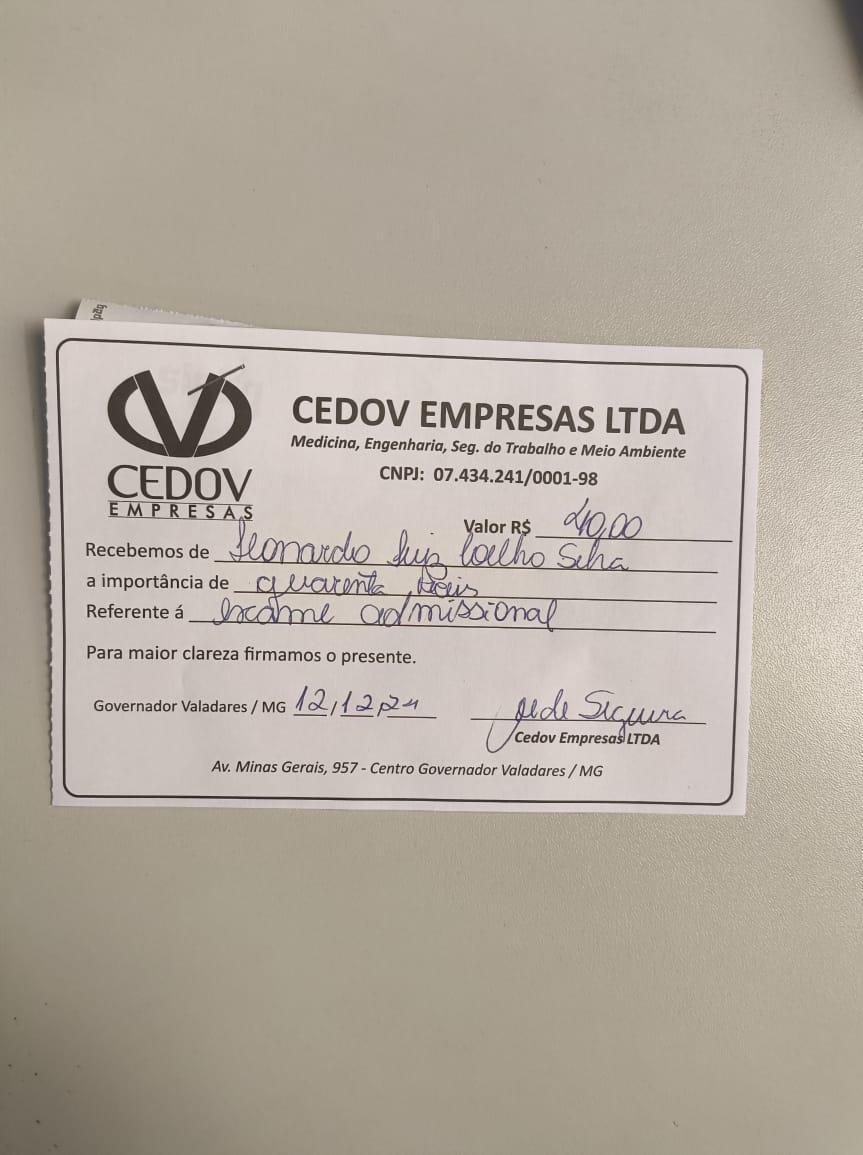 CEDOV
EMPRESAS
CEDOV EMPRESAS LTDA
Medicina, Engenharia, Seg. do Trabalho e Meio Ambiente
CNPJ: 07.434.241/0001-98
Valor R$ 40,00
Recebemos de Leonardo Luiz Coelho Silva
a importância de quarenta Reis
Referente á Exame admissional
Para maior clareza firmamos o presente.
Governador Valadares / MG 12/12/24
Cedov Empresas LTDA
Av. Minas Gerais, 957 - Centro Governador Valadares / MG